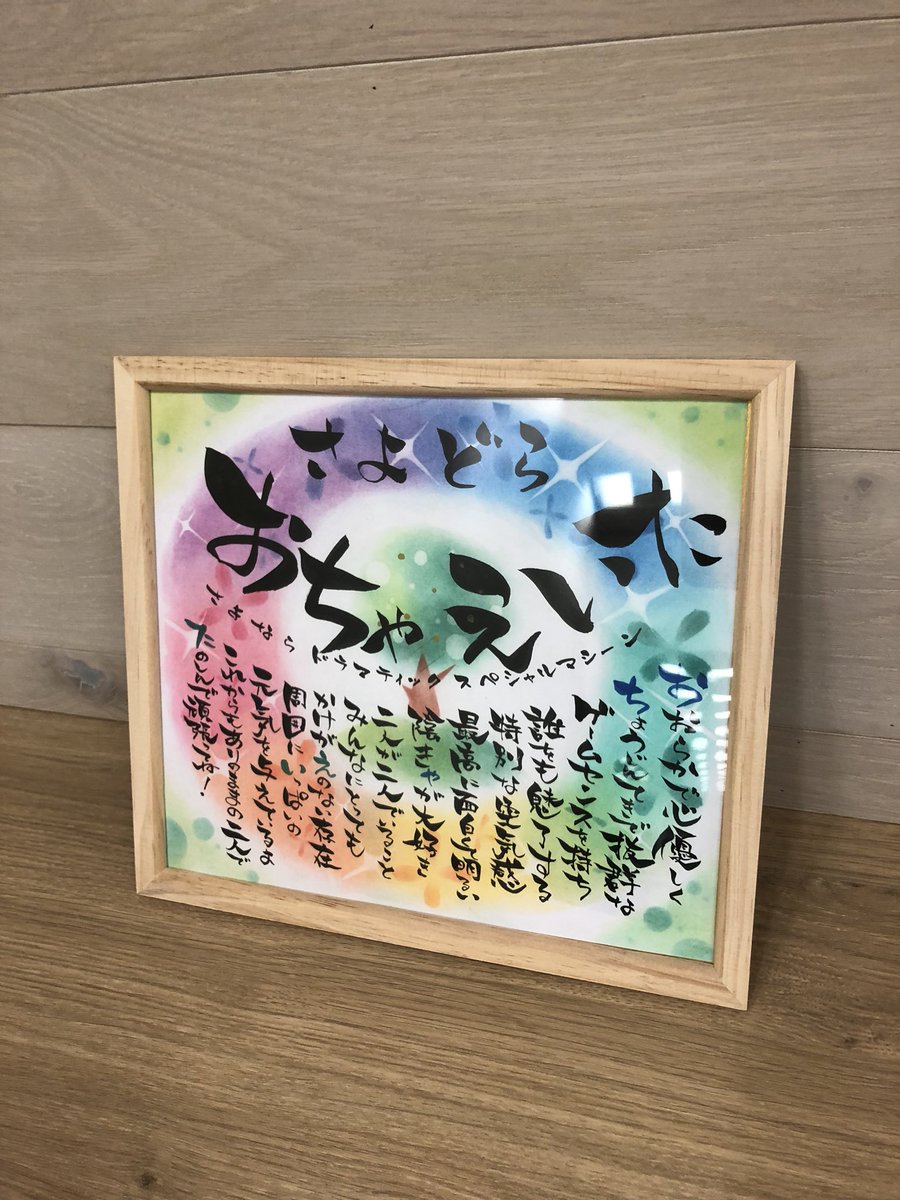 さよどら
おちゃえいた
さよならドラマティックスペシャルマシーン
おおらかで心優しく
ちょっと抜群な
ゲームセンスを持ち
誰をも魅了する
特別な空気感
最高に面白く明るい
陰きゃが大好き
二人が二人でいること
みんなにとっても
かけがえのない存在
周囲にいっぱいの
元気を与えてるよ
これからもありのままの二人で
たのしんで頑張ってね！